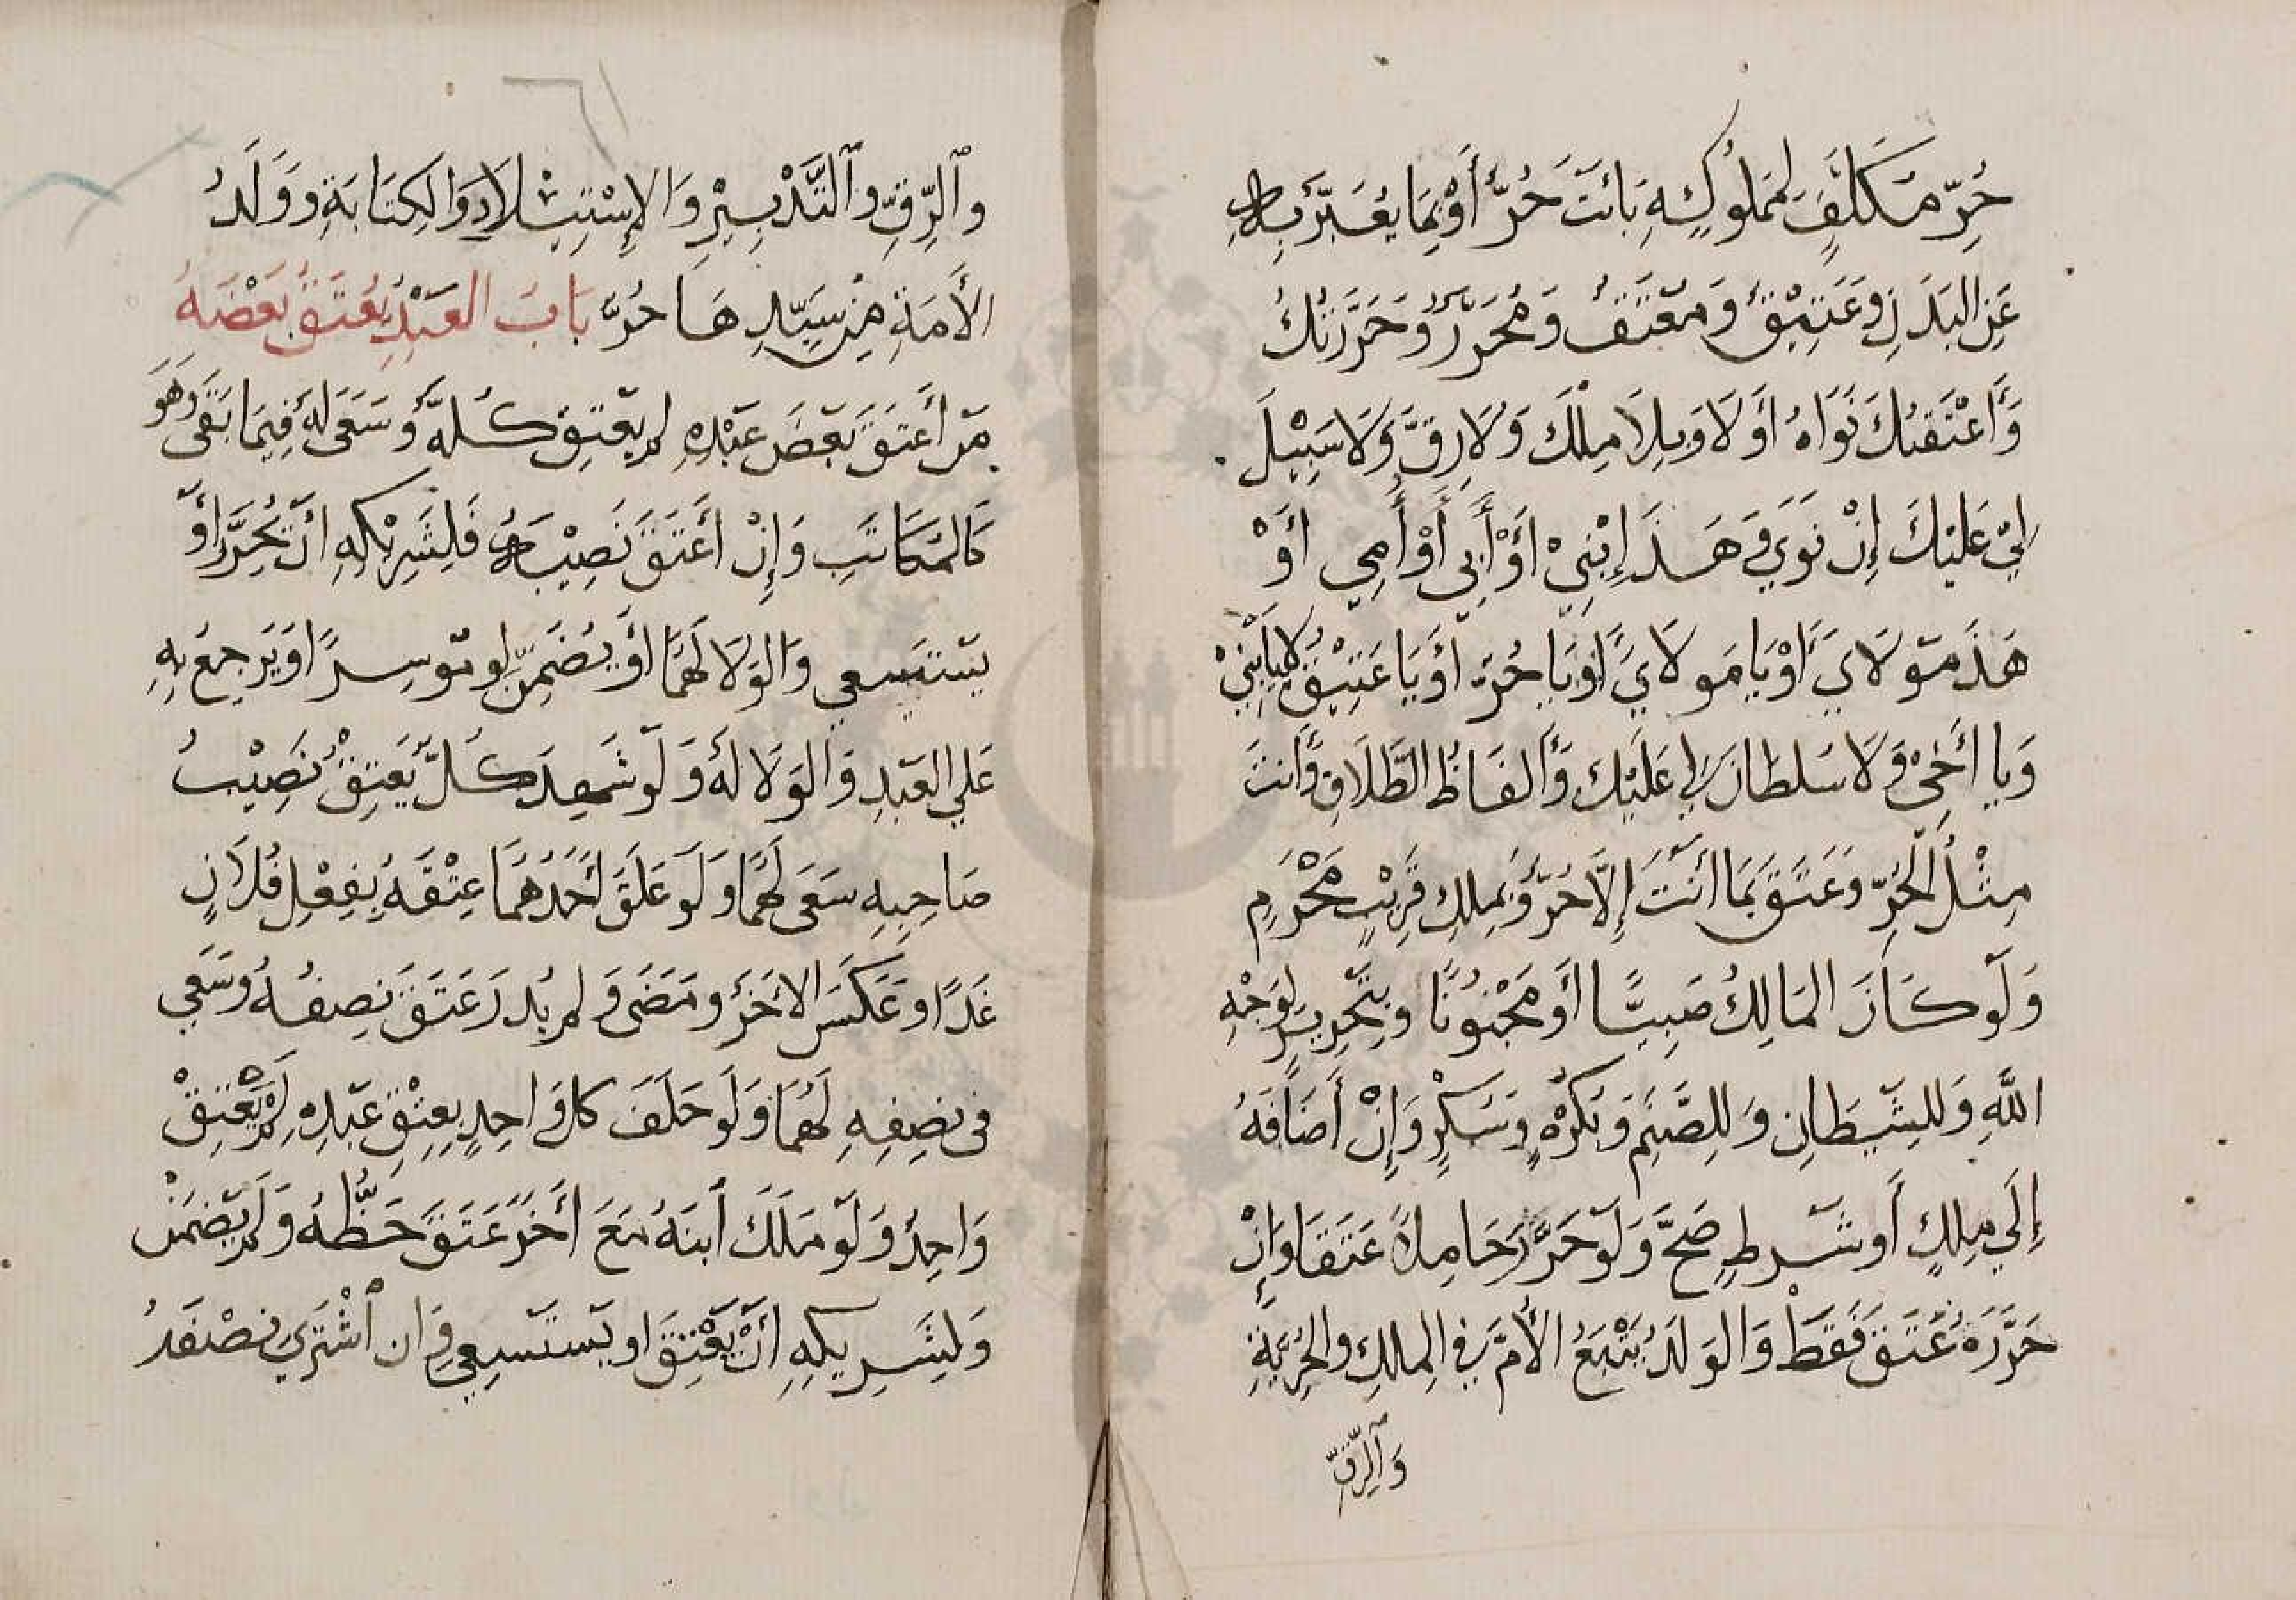 حُرٍّ مُكَلَّفٍ لِمَمْلُوكِهِ بِأَنْتَ حُرٌّ أَوْ بِمَا يُعَبَّرُ بِهِ
عَنِ البَدَنِ وَعَتِيْقٌ وَمُعْتَقٌ وَمُحَرَّرٌ وَحَرَّرْتُكَ
وَأَعْتَقْتُكَ نَوَاهُ أَوْ لَا وَبِلَا مِلْكَ وَلَا رِقَّ وَلَا سَبِيْلَ
لِيْ عَلَيْكَ إِنْ نَوَى وَهَذَا إِبْنِيْ أَوْ أَبِي أَوْ أُمِّي أَوْ
هَذَ مَوْلَايَ أَوْ يَا مَولَايَ أَوْ يَا حُرُّ أَوْ يَا عَتِيْقُ لَا بِيَا بْنِيْ
وَيَا أَخِيْ وَلَا سُلْطَانَ لِي عَلَيْكَ وَأَلْفَاظُ الطَّلَاقِ وَأَنْتَ
مِثْلُ الْحُرِّ وَعَتَقَ بِمَا أَنْتَ إِلَّا حُرٌّ وَبِمِلْكِ قَرِيْبٍ مَحْرَمٍ
وَلَوْ كَانَ المَالِكُ صَبِيًّا أَوْ مَجْنُونًا وَبِتَحْرِيرٍ لِوَجْهِ
اللَّهِ وَلِلشَّيْطَانِ وَلِلصَّنَمِ وَبِكُرْهٍ وَسُكْرٍ وَإِنْ أَضَافَهُ
إِلَي مِلْكٍ أَو شَرطٍ صَحَّ وَلَوْ حَرَّرَ حَامِلًا عَتَقَا وَإِنْ
حَرَّرَهُ عَتَقَ فَقَطْ وَالوَلَدُ يَتْبَعُ الأُمَّ فِي المِلْكِ وَالحُرِّيَّةِ
وَٱلرِّقِّ
وٱلرِّقِّ وٱلتَّدْبِيْرِ وَالإِسْتِيْلَادِ وَالكِتَابَةِ وَوَلَدُ
الأَمَةِ مِنْ سَيِّدِهَا حُرٌّ بَابُ العَبْدِ يُعْتَقُ بَعْضُهُ
مَنْ أَعْتَقَ بَعْضَ عَبْدِهِ لم يَعْتِق كُلُّهُ وَسَعَى لَهُ فِيمَا بَقَى وَهُوَ
كَالمُكَاتَبِ وَإِنْ أَعْتَقَ نَصِيْبَهُ فَلِشَرِيْكِهِ أَنْ يُحَرِّرَ أَوْ
يَسْتَسْعِي وَالوَلَا لَهُمَا أَوْ يُضَمِّنَ لَو مُوسِرًا وَيَرجِعُ بِهِ
عَلي العَبْدِ وَالوَلَا لَهُ وَلَوْ شَهِدَ كُلٌّ بِعِتْقِ نَصِيْبِ
صَاحِبِهِ سَعَى لَهُمَا وَلَو عَلَّقَ أَحَدُهُمَا عِتْقَهُ بِفِعْلِ فُلَانٍ
غَدًا وَعَكَسَ الاخَرُ وَمَضَى وَلم يُدرَ عَتَقَ نِصفُهُ وَسَعَي
فى نِصفِهِ لَهُمَا وَلَو حَلَفَ كل وَاحِدٍ بِعِتْقِ عَبْدِهِ لَمْ يَعْتِقْ
وَاحِدٌ وَلَوْ مَلَكَ ٱبنَهُ مَعَ أَخَرَ عَتَقَ حَظُّهُ وَلَمْ يَضْمَنْ
وَلِشَرِيكِهِ أَنْ يَعْتِقَ او يَستَسعِي وَان ٱشْتَرَي نِصْفَهُ